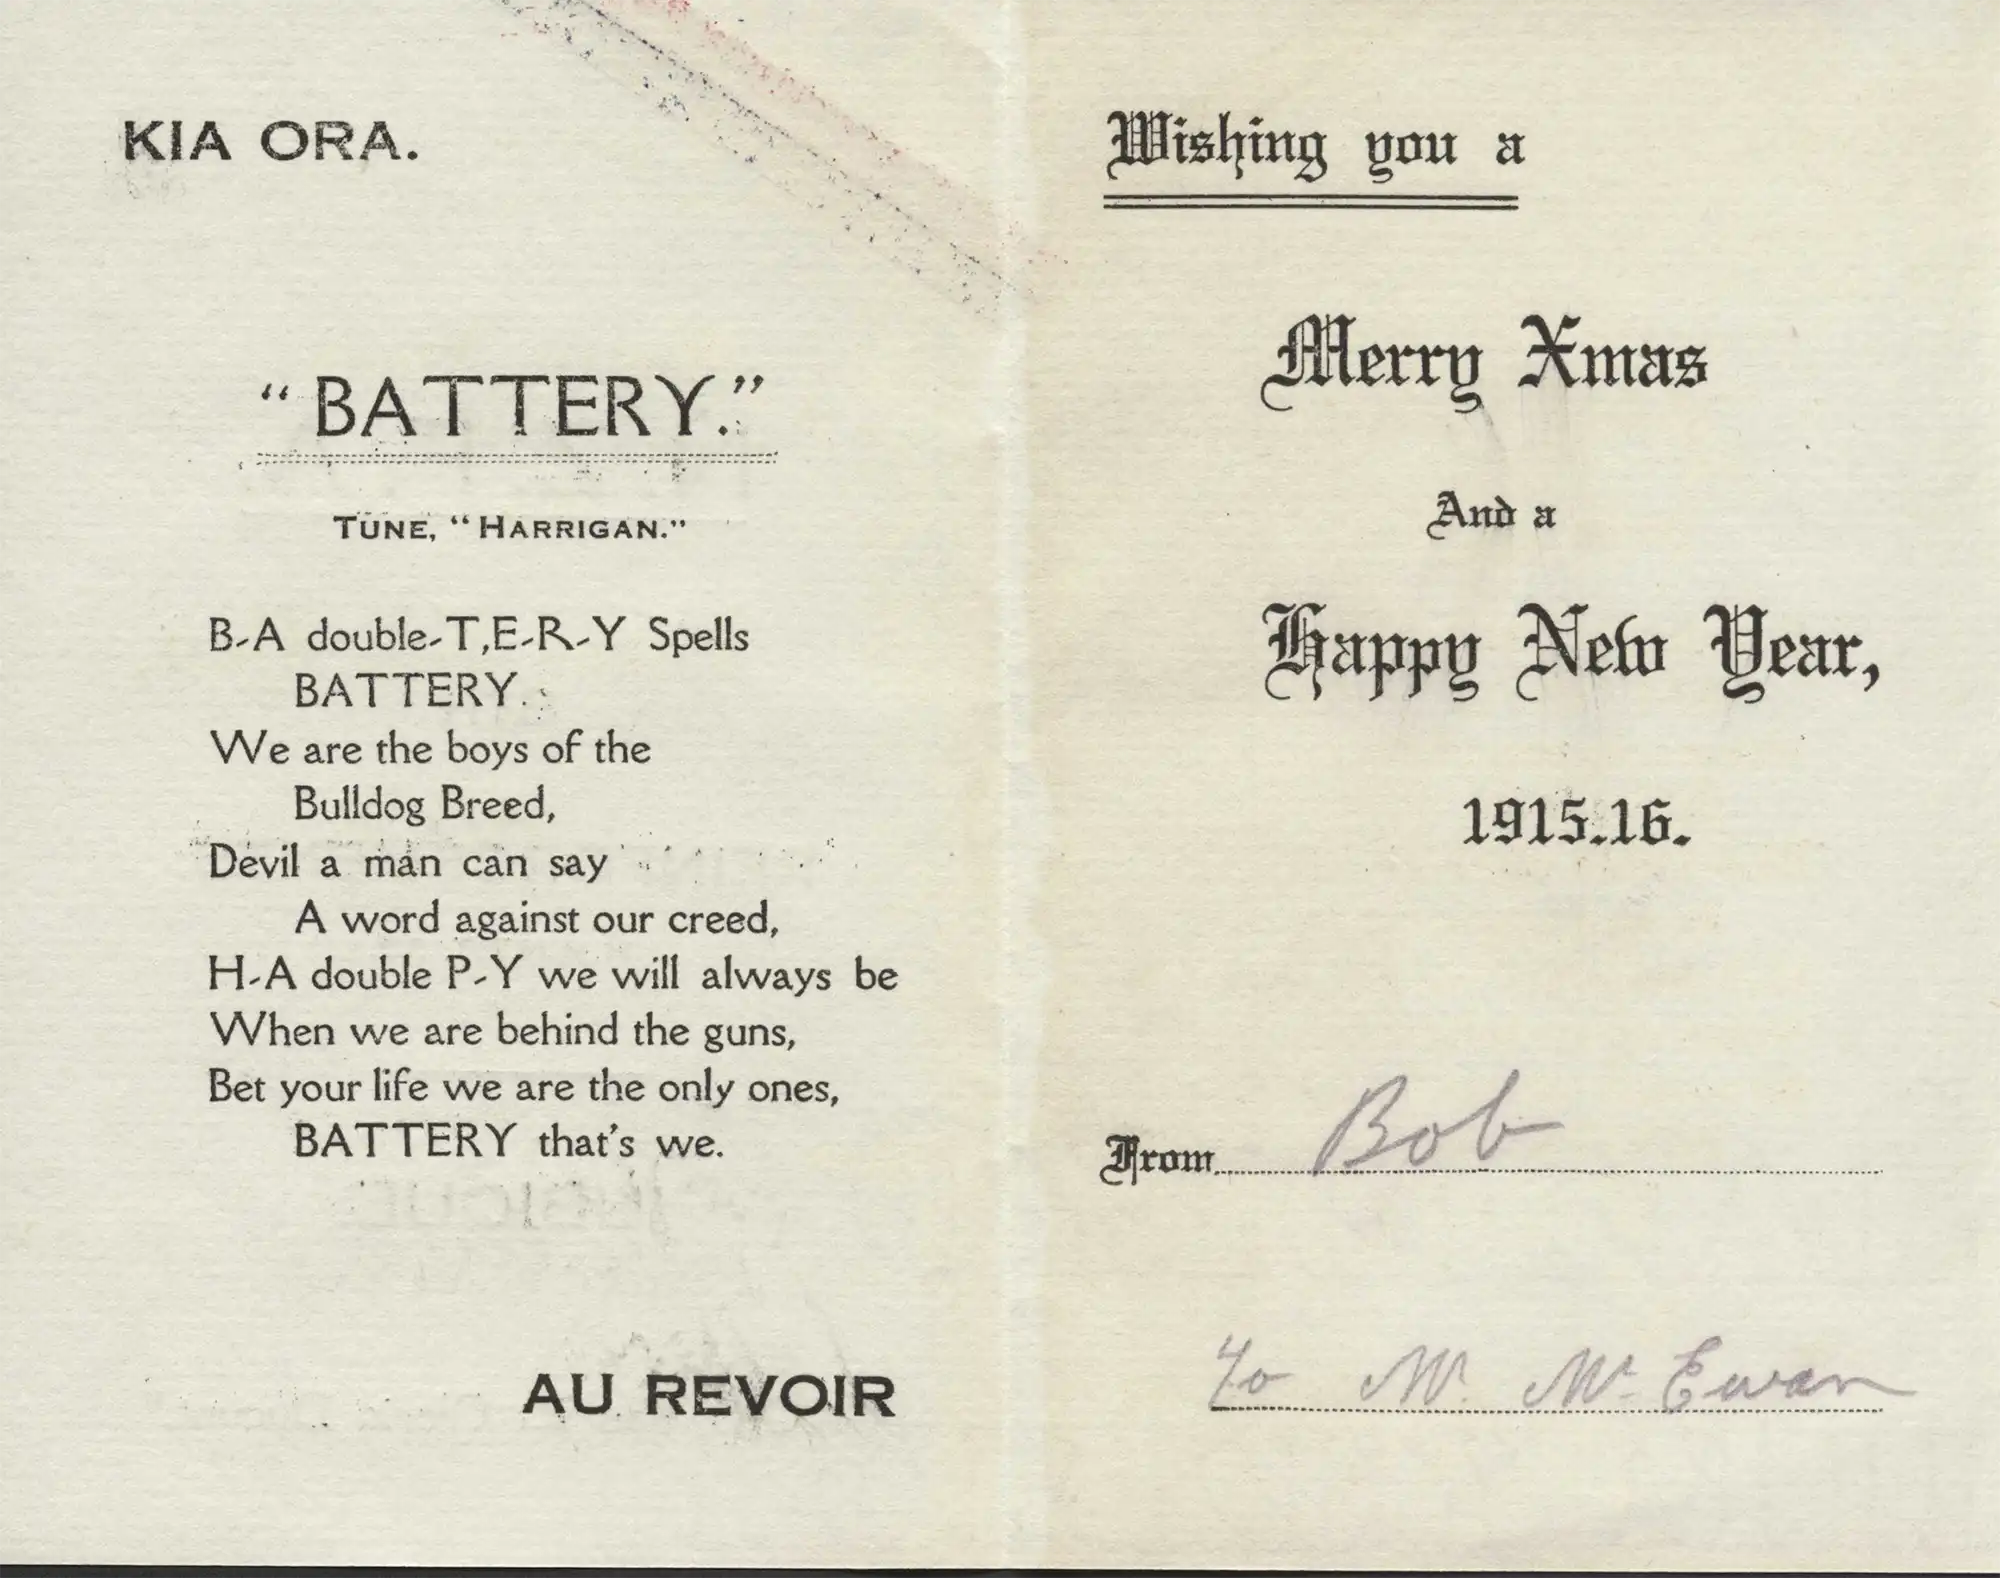 KIA ORA.
"BATTERY."
TUNE, "HARRIGAN."
B-A double-T,E-R-Y Spells
BATTERY.
We are the boys of the
Bulldog Breed,
Devil a man can say
A word against our creed,
H-A double P-Y we will always be
When we are behind the guns,
Bet your life we are the only ones,
BATTERY that's we.
AU REVOIR
Wishing you a
Merry Xmas
And a
Happy New Year,
1915.16.
From Bob
To Mr. Mc Ewan